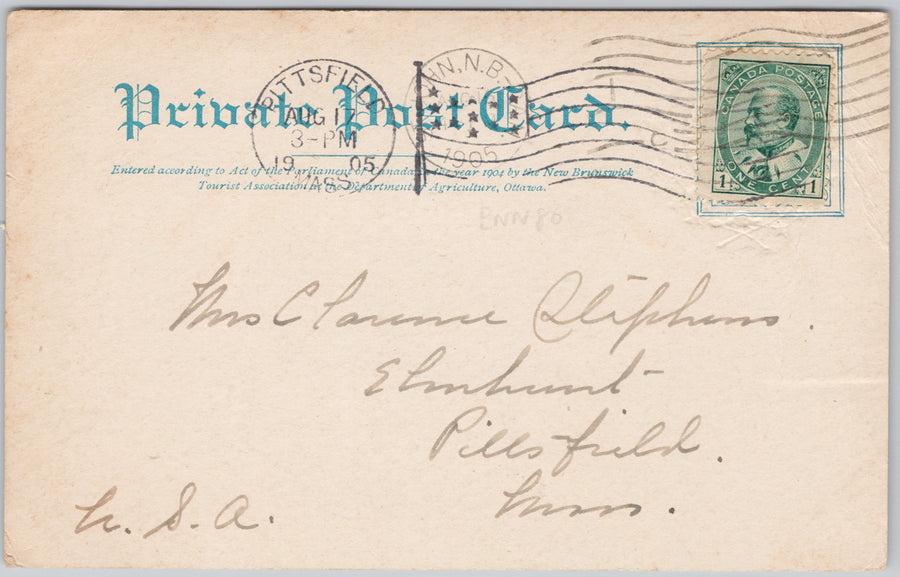 Private Post Card.
Entered according to Act of the Parliament of Canada in the year 1904 by the New Brunswick
Tourist Association in the Department of Agriculture, Ottawa.
PITTSFIELD
AUG 17
3-PM
19 05
MASS.
N.B.
1905
CANADA POSTAGE
ONE CENT
1 1
ENN80
Mrs Clarence Stephens.
Elmhurst
Pittsfield.
Mass.
U.S.A.